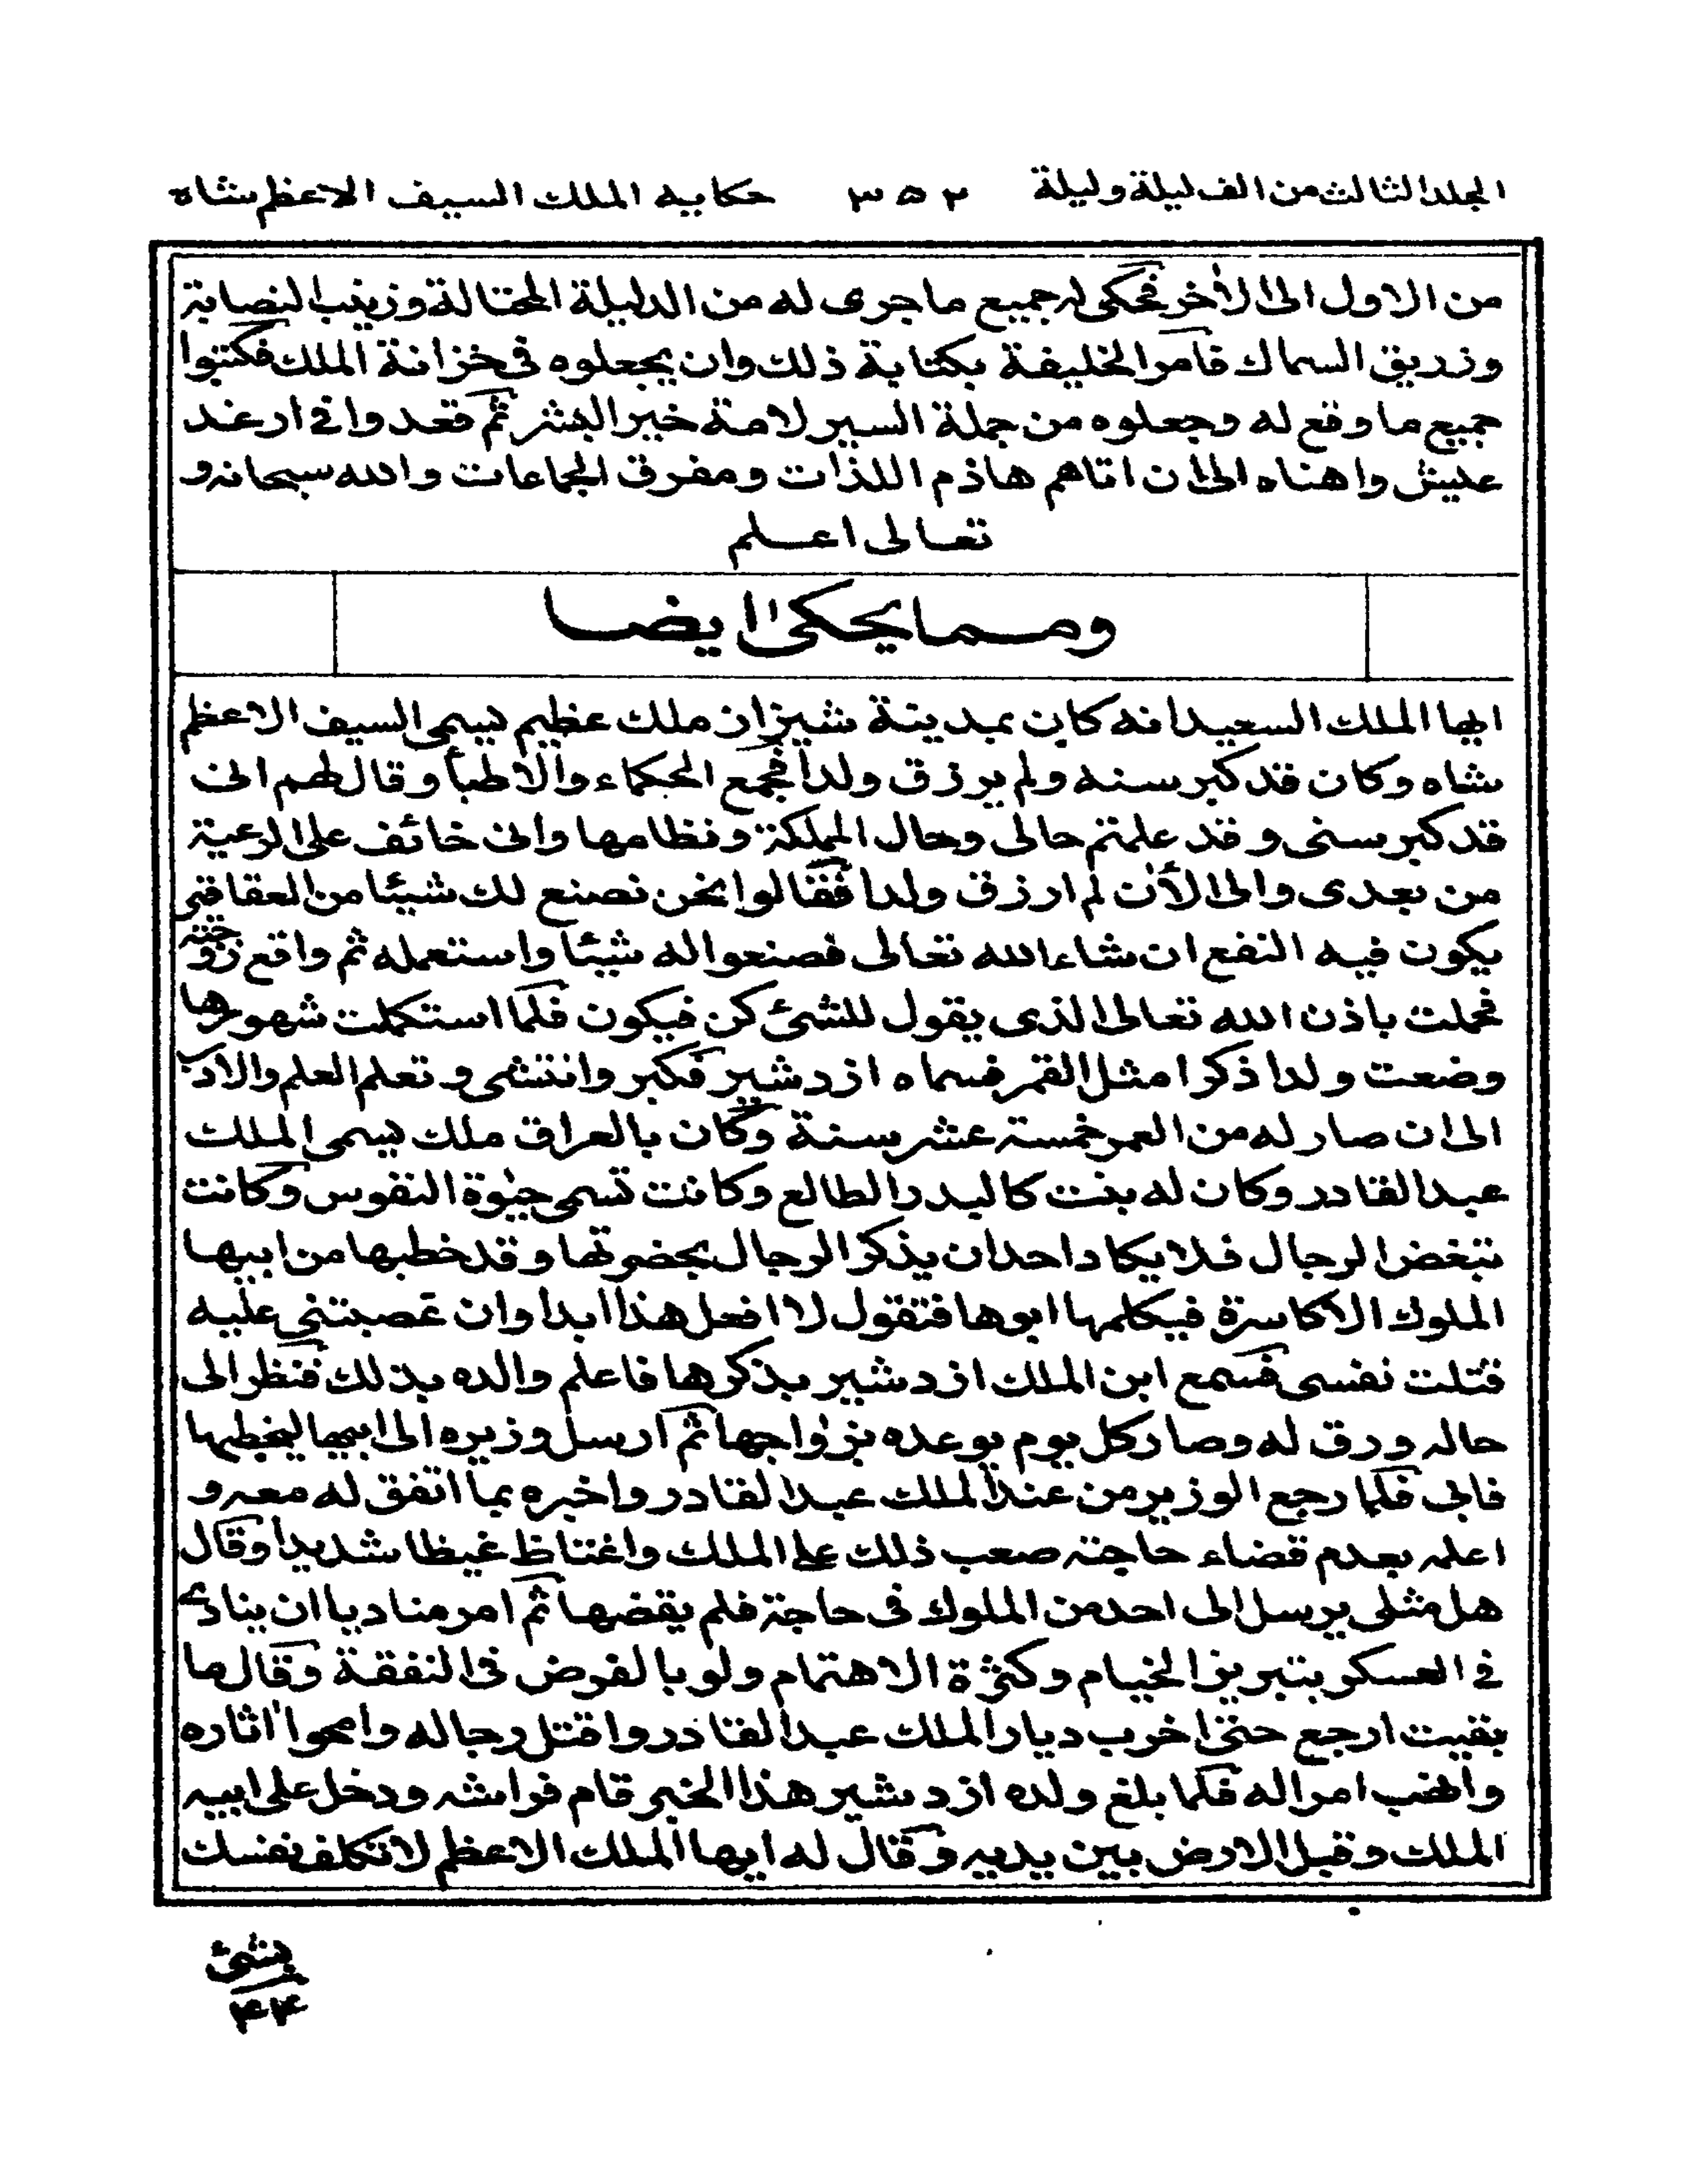 المجلد الثالث من الف ليلة وليلة ٣٥٢ حكاية الملك السيف الاعظم شاه
من الاول الى الأخر فحكى له جميع ما جرى له من الدليلة المحتالة وزينب النصابة
وزريق السماك فامر الخليفة بكتابة ذلك وان يجعلوه فى خزانة الملك فكتبوا
جميع ما وقع له وجعلوه من جملة السير لامة خير البشر ثم قعدوا فى ارغد
عيش واهناه الى ان اتاهم هاذم اللذات ومفرق الجماعات والله سبحانه و
تعالى اعلم
ومما يحكى ايضا
ايها الملك السعيد انه كان بمدينة شيراز ملك عظيم يسمى السيف الاعظم
شاه وكان قد كبر سنه ولم يرزق ولدا فجمع الحكماء والاطبأ وقال لهم انى
قد كبر سنى وقد علمتم حالى وحال المملكة ونظامها وانى خائف على الرعية
من بعدى والى الأن لم ارزق ولدا فقالوا نحن نصنع لك شيئا من العقاقير
يكون فيه النفع ان شاء الله تعالى فصنعوا له شيئا واستعمله ثم واقع زوجته
فحملت باذن الله تعالى الذى يقول للشئ كن فيكون فلما استكملت شهورها
وضعت ولدا ذكرا مثل القمر فسماه ازدشير فكبر وانتشى و تعلم العلم والادب
الى ان صار له من العمر خمسة عشر سنة وكان بالعراق ملك يسمى الملك
عبد القادر وكان له بنت كالبدر الطالع وكانت تسمى حيوة النفوس وكانت
تبغض الرجال فلا يكاد احد ان يذكر الرجال بحضرتها وقد خطبها من ابيها
الملوك الاكاسرة فيكلمها ابوها فتقول لا افعل هذا ابدا وان غصبتنى عليه
قتلت نفسى فسمع ابن الملك ازدشير بذكرها فاعلم والده بذلك فنظر الى
حاله ورق له وصار كل يوم يوعده بزواجها ثم ارسل وزيره الى ابيها ليخطبها
فابى فلما رجع الوزير من عند الملك عبد القادر واخبره بما اتفق له معه و
اعلمه بعدم قضاء حاجته صعب ذلك على الملك واغتاظ غيظا شديدا وقال
هل مثلى يرسل الى احد من الملوك فى حاجة فلم يقضها ثم امر مناديا ان ينادى
فى العسكر بتبريز الخيام وكثرة الاهتمام ولو بالقرض فى النفقة وقال ما
بقيت ارجع حتى اخرب ديار الملك عبد القادر واقتل رجاله وامحوا اثاره
وانهب امواله فلما بلغ ولده ازدشير هذا الخبر قام فراشه ودخل على ابيه
الملك وقبل الارض بين يديه وقال له ايها الملك الاعظم لا تكلف نفسك
بشئ
٤٤